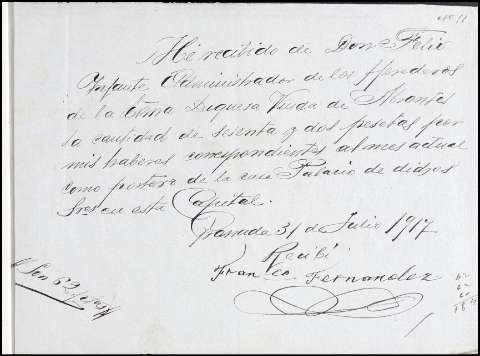 He recibido de Don Felix
Infante Administrador de los
de la Exma Duquesa Viuda de Abrantes
la cantidad de sesenta y dos pesetas por
mis haberes correspondientes al mes actual
como portero de la casa Palacio de dichos
Sres en esta Capital.
Granada 31 de Julio 1917
Recibí
Franco Fernandez
Son 62 Pesetas